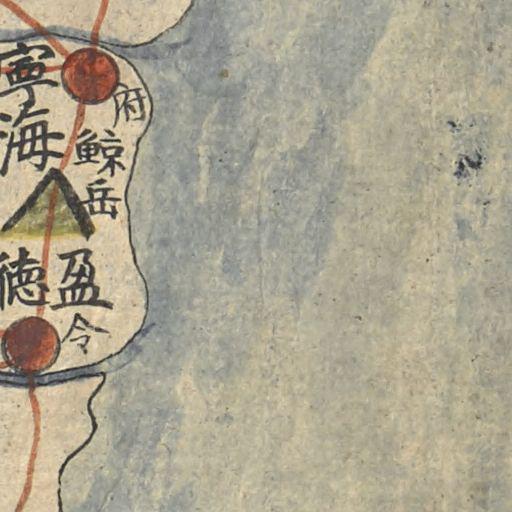 寧海
府
鯨岳
盈徳
令